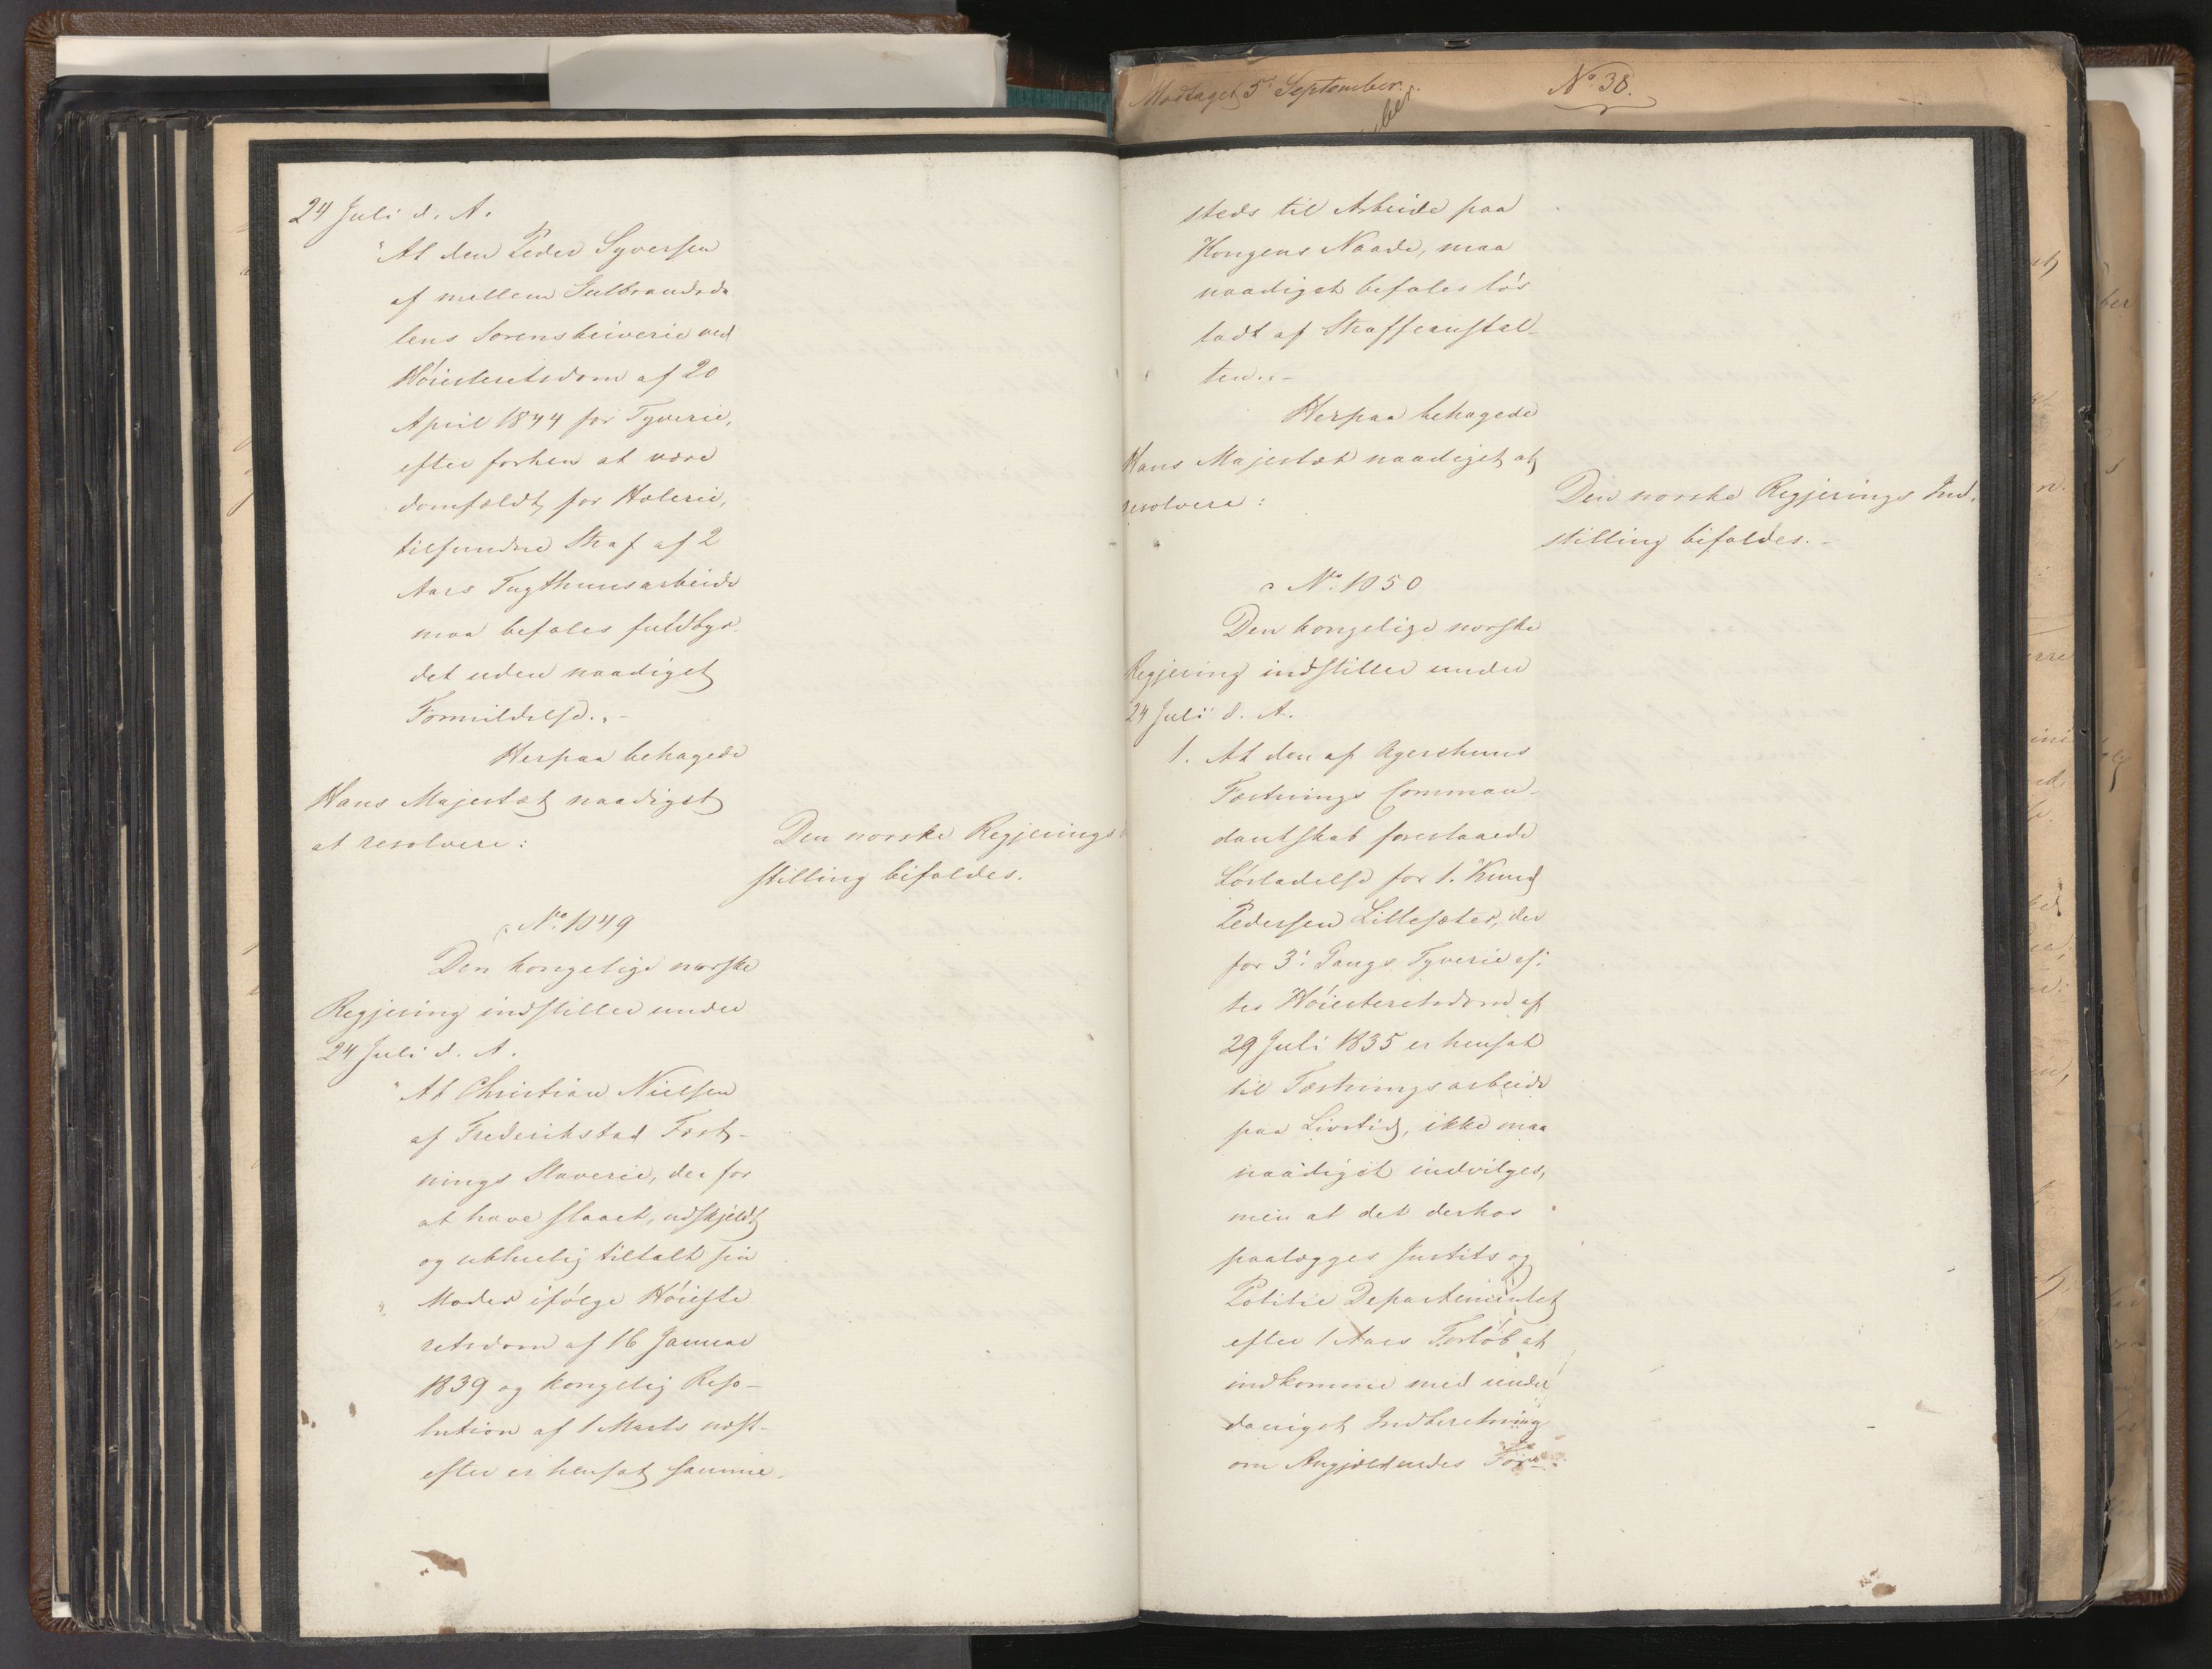 24 Juli d. A.
"At den Peder Syversen
af mellem Gulbrandsda
lens Sorenskriverie ved
Høiesteretsdom af 20
April 1844 for Tyverie,
efter forhen at være
domfældt for Hælerie,
tilfundne Straf af 2
Aars Tugthuusarbeide
maa befales fuldbyr-
det uden naadigst
Formildelse." -
Herpaa behagede
Hans Majestæt naadigst
at resolvere:
Den norske Regjerings
stilling bifaldes.
No. 1049
Den kongelige norske
Regjering indstiller under
24 Juli d. A.
"At Christian Nielsen
af Frederikstad Fæst-
nings Slaverie, der for
at have slaaet, udskjeldt
og ublueligt tiltalt sin
Moder ifølge Høieste
retsdom af 16 Januar
1839 og kongelig Reso-
lution af 1 Marts næst-
efter er hensat samme-
Modtaget 5t September.
No. 38.
ber
steds til Arbeide paa
Kongens Naade, maa
naadigst befales løs
ladt af Straffeanstal-
ten." -
Herpaa behagede
Hans Majestæt naadigst at
resolvere:
Den norske Regjerings Ind-
stilling bifaldes. -
No. 1050
Den kongelige norske
Regjering indstiller under
24 Juli d. A.
1. At den af Agershuus
Fæstnings Comman-
dantskab foreslaaede
Løsladelse for 1. Knud
Pedersen Lillesæter, der
for 3die Gangs Tyverie ef-
ter Høiesteretsdom af
29 Juli 1835 er hensat
til Fæstningsarbeide
paa Livstid, ikke maa
naadigst indvilges,
men at det derhos
paalægges Justits og
Politie Departementet
efter 1 Aars Forløb at
indkomme med under
danigst Indberetning
om Angjældendes For-